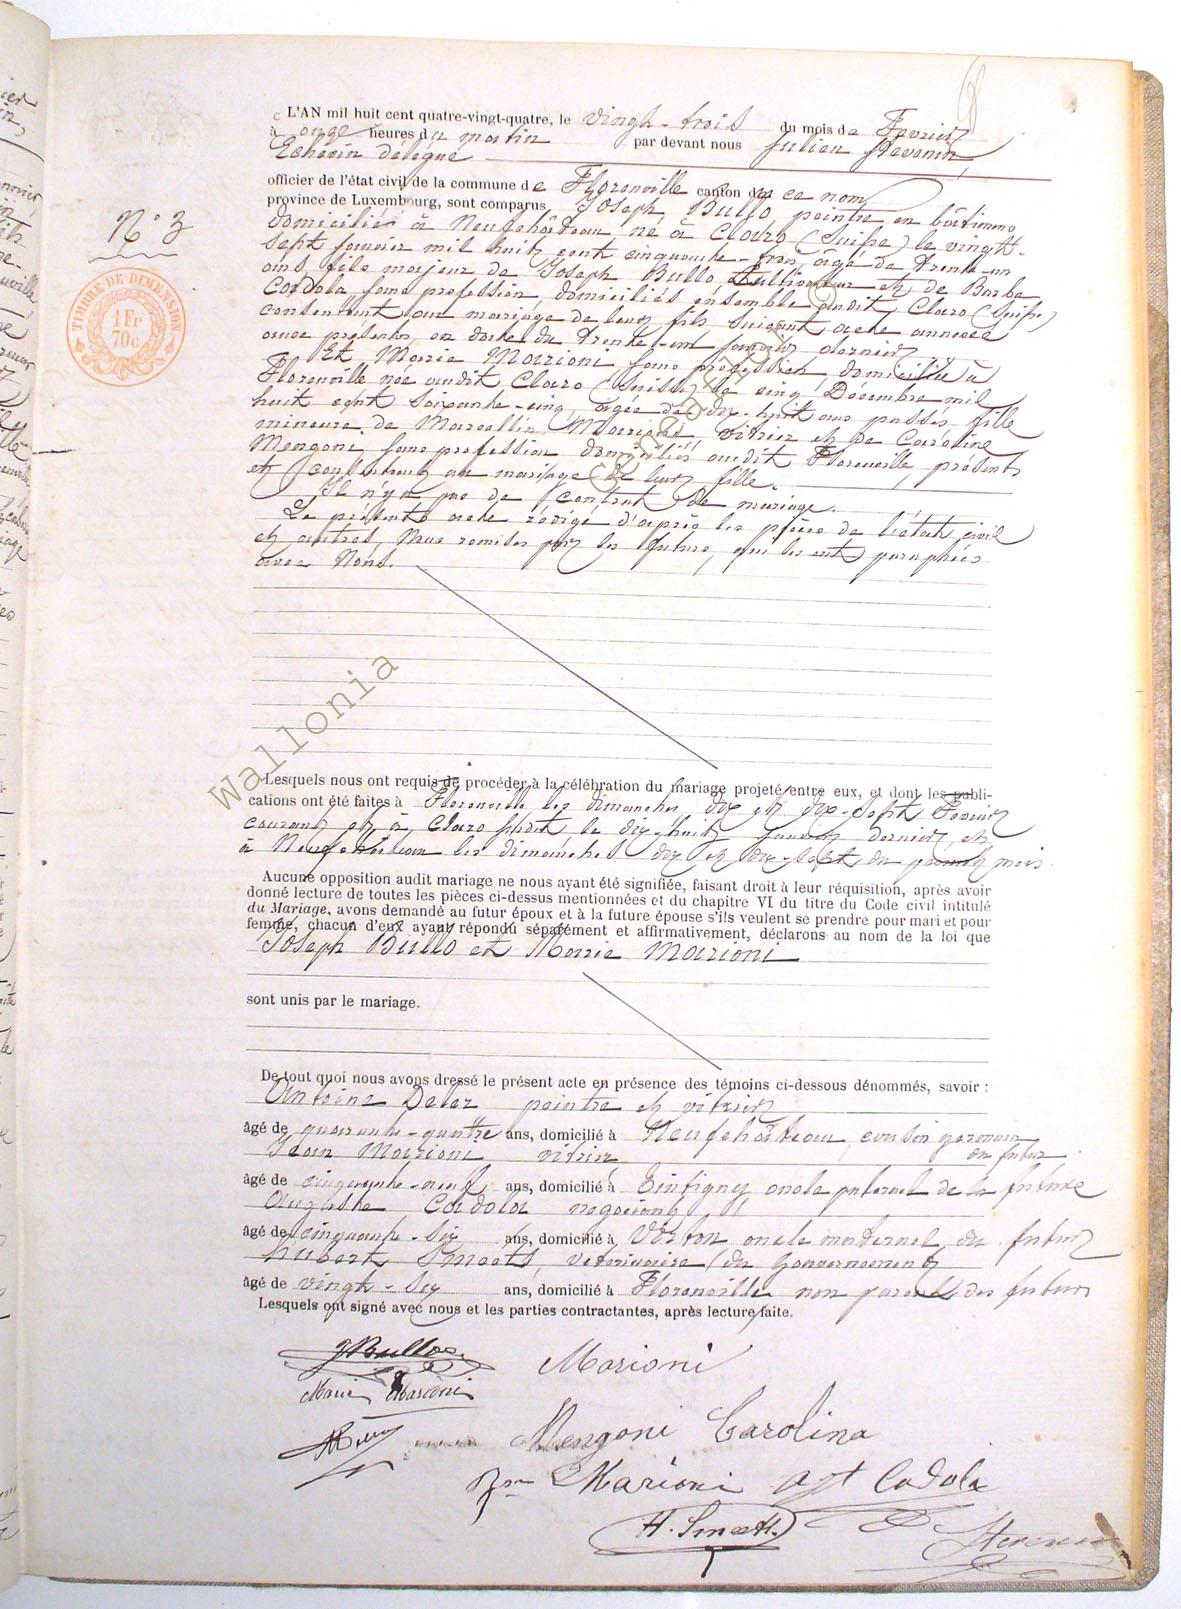 L'AN mil huit cent quatre-vingt-quatre, le vingt-trois du mois de Fevrier
à onze heures du matin par devant nous Julien Stevenin,
Echevin délégué
officier de l'état civil de la commune de Florenville canton de ce nom
province de Luxembourg, sont comparus Joseph Bullo, peintre en bâtiments
N° 3
domicilié à Neufchâteau né à Claro (Suisse) le vingt-
sept janvier mil huit cent cinquante-trois, agé de trente-un
ans, fils majeur de Joseph Bullo, Cultivateur et de Barbe
Codola sans profession, domiciliés ensemble audit Claro (Suisse)
consentant au mariage de leur fils suivant acte annexé
aux présentes, en date du trente-un janvier dernier
TIMBRE DE DIMENSION
1 Fr
70c
Et Marie Marioni sans profession domiciliée à
Florenville née audit Claro (Suisse) le cinq Décembre mil
huit cent soixante-cinq, agée de dix-huit ans passés, fille
mineure de Marcellin Marioni, vitrier et de Caroline
Mengoni sans profession domiciliés audit Florenville, présents
et consentant au mariage de leur fille.
Il n'y a pas de contrat de mariage.
Le présent acte rédigé d'après les pièces de l'état civil
et autres, Nous remises par les futurs, qui les ont paraphées
avec Nous.
Wallonia
Lesquels nous ont requis de procéder à la célébration du mariage projeté entre eux, et dont les publi-
cations ont été faites à Florenville les dimanches, dix et dix-sept Fevrier
courant et à Claro susdit le dix-huit janvier dernier, et
à Neufchâteau les dimanches dix et dix-sept du mois
Aucune opposition audit mariage ne nous ayant été signifiée, faisant droit à leur réquisition, après avoir
donné lecture de toutes les pièces ci-dessus mentionnées et du chapitre VI du titre du Code civil intitulé
du Mariage, avons demandé au futur époux et à la future épouse s'ils veulent se prendre pour mari et pour
femme, chacun d'eux ayant répondu séparément et affirmativement, déclarons au nom de la loi que
Joseph Bullo et Marie Marioni
sont unis par le mariage.
De tout quoi nous avons dressé le présent acte en présence des témoins ci-dessous dénommés, savoir :
Antoine peintre et vitrier
âgé de quarante-quatre ans, domicilié à Neufchâteau, cousin germain
Jean Marioni vitrier du futur
âgé de cinquante-neuf ans, domicilié à Tintigny oncle paternel de la future
Auguste Codola negociant
âgé de cinquante-six ans, domicilié à Virton oncle maternel du futur
Hubert Smeets, veterinaire du Gouvernement
âgé de vingt-six ans, domicilié à Florenville non parent des futurs
Lesquels ont signé avec nous et les parties contractantes, après lecture faite.
J Bullo
Marioni
Marie Marioni
Mengoni Carolina
Marioni
Codola
H. Smeets
Stevenin